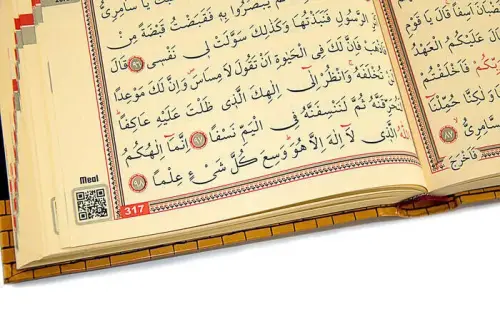 يَا سَامِرِىُّ
يَبْصُرُوا بِهٖ فَقَبَضْتُ قَبْضَةً مِنْ
الرَّسُولِ فَنَبَذْتُهَا وَكَذٰلِكَ سَوَّلَتْ لٖى نَفْسٖى ﴿٩٦﴾ قَالَ
فَاِنَّ لَكَ فِى الْحَيٰوةِ اَنْ تَقُولَ لَا مِسَاسَ وَاِنَّ لَكَ مَوْعِدًا
تُخْلَفَهُ وَانْظُرْ اِلٰٓى اِلٰهِكَ الَّذٖى ظَلْتَ عَلَيْهِ عَاكِفًا
ثُمَّ لَنَنْسِفَنَّهُ فِى الْيَمِّ نَسْفًا ﴿٩٧﴾ اِنَّمَٓا اِلٰهُكُمُ
الَّذٖى لَٓا اِلٰهَ اِلَّا هُوَ وَسِعَ كُلَّ شَىْءٍ عِلْمًا ﴿٩٨﴾
Meal
317
اَسِفًا قَالَ يَا قَوْمِ
عَلَيْكُمُ الْعَهْدُ
فَاَخْلَفْتُمْ
وَلٰكِنَّا حُمِّلْنَٓا
فَاَخْرَجَ